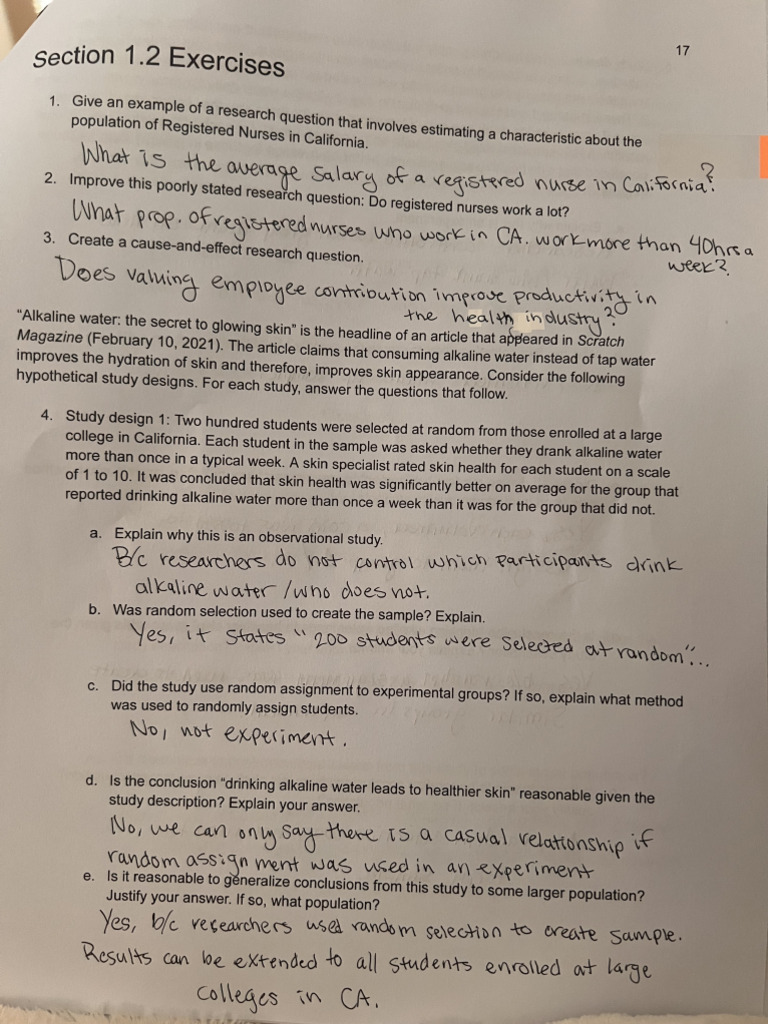 17
Section 1.2 Exercises
1. Give an example of a research question that involves estimating a characteristic about the
population of Registered Nurses in California.
What is the average salary of a registered nurse in California?
2. Improve this poorly stated research question: Do registered nurses work a lot?
What prop. of registered nurses who work in CA. work more than 40hrs a
week?
3. Create a cause-and-effect research question.
Does valuing employee contribution improve productivity in
the health industry?
"Alkaline water: the secret to glowing skin" is the headline of an article that appeared in Scratch
Magazine (February 10, 2021). The article claims that consuming alkaline water instead of tap water
improves the hydration of skin and therefore, improves skin appearance. Consider the following
hypothetical study designs. For each study, answer the questions that follow.
4. Study design 1: Two hundred students were selected at random from those enrolled at a large
college in California. Each student in the sample was asked whether they drank alkaline water
more than once in a typical week. A skin specialist rated skin health for each student on a scale
of 1 to 10. It was concluded that skin health was significantly better on average for the group that
reported drinking alkaline water more than once a week than it was for the group that did not.
a. Explain why this is an observational study.
B/c researchers do not control which participants drink
alkaline water / who does not.
b. Was random selection used to create the sample? Explain.
Yes, it states "200 students were selected at random"...
c. Did the study use random assignment to experimental groups? If so, explain what method
was used to randomly assign students.
No, not experiment.
d. Is the conclusion "drinking alkaline water leads to healthier skin" reasonable given the
study description? Explain your answer.
No, we can only say there is a casual relationship if
random assignment was used in an experiment
e. Is it reasonable to generalize conclusions from this study to some larger population?
Justify your answer. If so, what population?
Yes, b/c researchers used random selection to create sample.
Results can be extended to all students enrolled at large
colleges in CA.